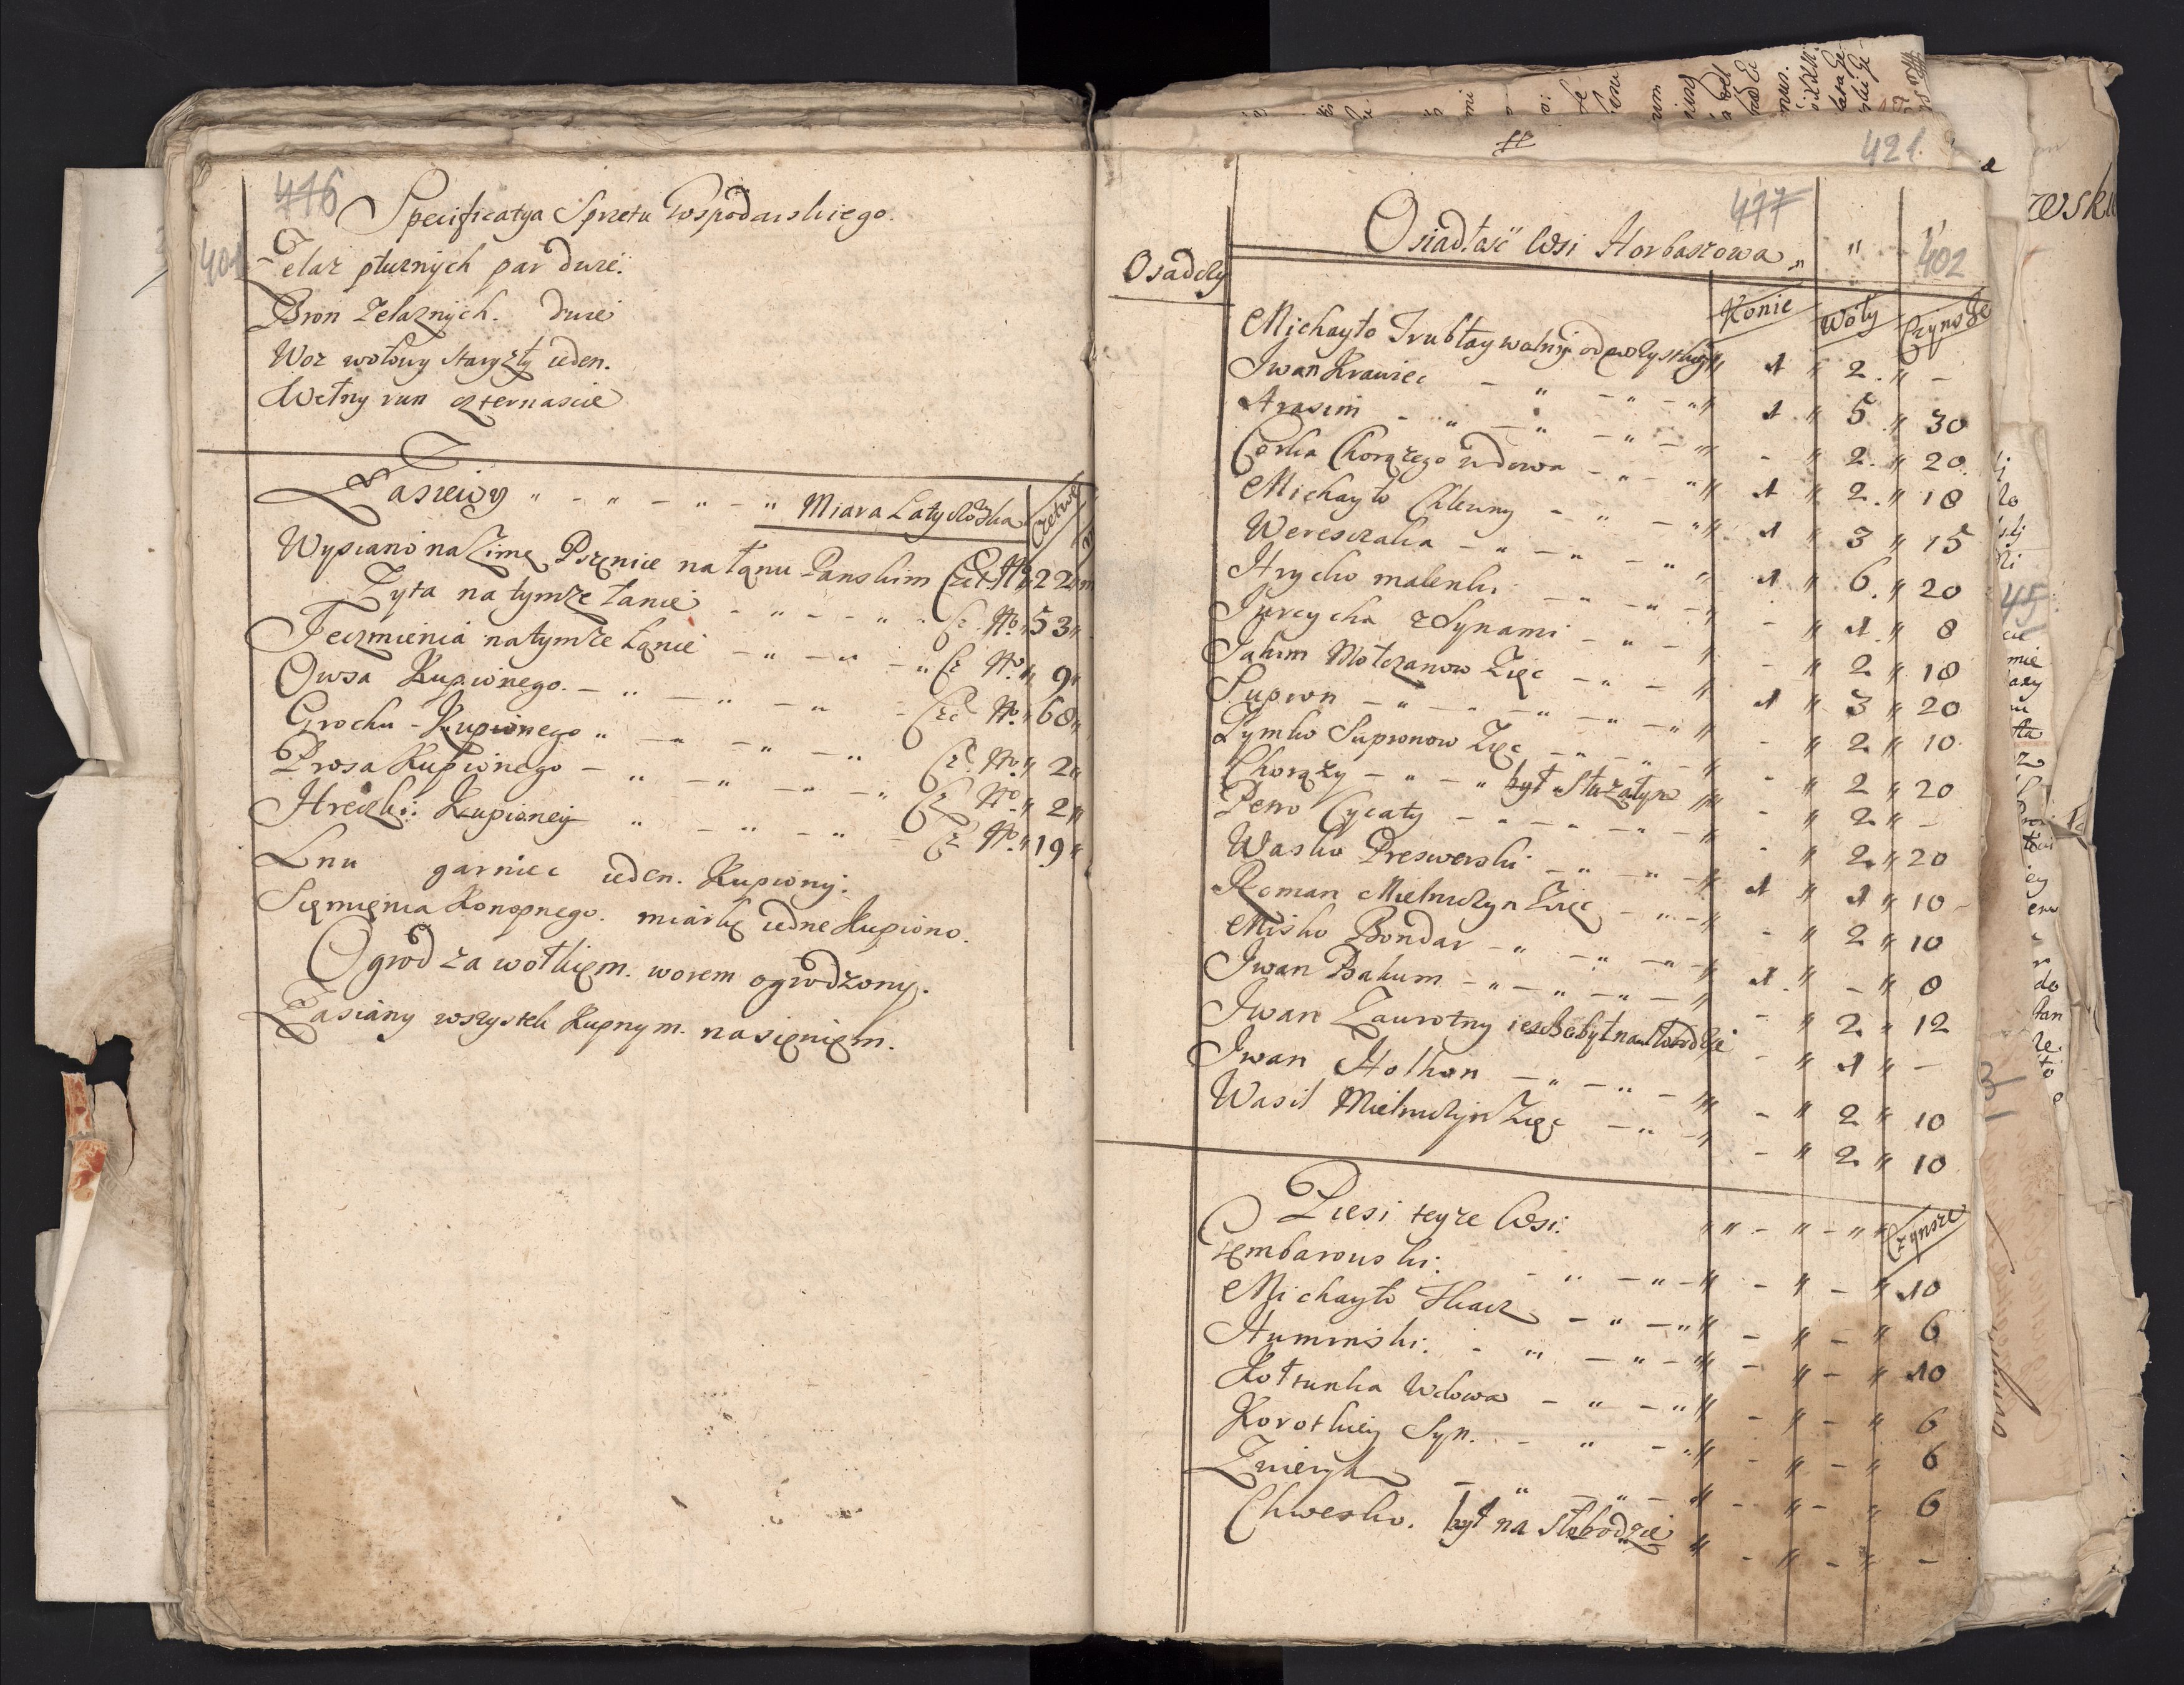 416
Specificatya Sprzetu Gospodarskiego.
401
Zelaz płuznych par dwie.
Bron Zelaznych. dwie
Woz wołowy starszły ieden.
Wełny run czternascie
Zasiewy " - " - " - " Miara Latyczowska Czetwe
Wysiano na Zimę Pszenice na łanu Panskim Czet. No 22
Zyta na tymze łanie - " - - " - Cz. No. 53
Jeczmienia na tymze łanie - " - " - " Cz No. 9
Owsa Kupionego. - " - " - " - Czt No. 68
Grochu - Kupionego " - " - " - " Cz. No. 2
Prosa Kupionego - " - " - " - " Cz No. 2
Hreczki. Kupioney " - " - " - Cz No. 19
Lnu garniec ieden. Kupiony.
Siemienia Konopnego. miarkę iedne Kupiono.
Ogrod za wołkiem. worem ogrodzony.
Zasiany wszystek Kupnym. nasieniem.
421
477
402
Osiadłasć Wsi Horbaszowa " " "
Osadczy
Konie Woły Czynsze
Michayło Trubłay wolny od wszystkiego 1 " 2. " -
Iwan Krawiec - " - " - " 1 " 5 " 30
Arasim - " - " - " - - " 2. " 20
Corka Chorązego wdowa - " - " 1 " 2. " 18
Michayło Chlewny - " - " 1 " 3 " 15
Wereszczaka - " - " - " 1 " 6. " 20
Hrycko malenki - " - " - - " 1. " 8
Jurcycha z Synami - " - - " 2 " 18
Jakim Mołczanow Zięc - " - 1 " 3 " 20
Supron - " - " - " - " - " - " 2 " 10.
Tymko Supronow Zięc - " - " - - " 2 " 20
Chorązy - " - " był Służałym - " 2 " -
Petro Cycały - " - " - " - - " 2 " 20
Wasko Preswerski - " - " - 1 " 1 " 10
Roman Mielniczyn Zięc - " - - " 2 " 10
Misko Bondar - " - " - " - 1. " - " 8
Iwan Bakum - " - " - " - - " 2 " 12
Iwan Zawrotny ieszcze był na Słobodzie - " 1 " -
Iwan Holhon - " - " - - " 2 " 10
Wasil Mielniczyn Zięc - " - - " 2 " 10
Piesi teyze Wsi. " " - " - " " Czynsze
Cembarowski. - " - " - " - " - " 10
Michayło Tkacz - " - " " - " - " 6
Huminski. - " - " - " - " - " 10
Kołtunka Wdowa - " - " " - " - " 6
Korotkiey Syn. - " - " - " - " 6
Zwieryk - " - " - " - " - " 6
Chwesko. był na Słobodzie " - " - " -